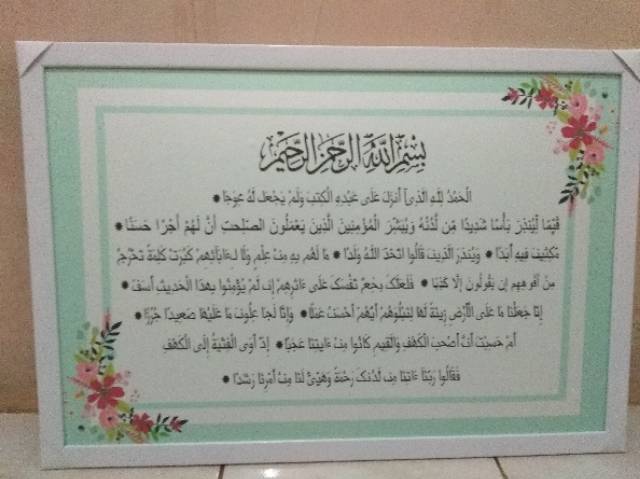 بِسْمِ اللَّهِ الرَّحْمَٰنِ الرَّحِيمِ
الْحَمْدُ لِلَّهِ الَّذِيْ أَنْزَلَ عَلَى عَبْدِهِ الْكِتٰبَ وَلَمْ يَجْعَل لَهُ عِوَجًا ●
قَيِّمًا لِّيُنْذِرَ بَأْسًا شَدِيدًا مِّن لَّدُنْهُ وَيُبَشِّرَ الْمُؤْمِنِينَ الَّذِينَ يَعْمَلُونَ الصّٰلِحٰتِ أَنَّ لَهُمْ أَجْرًا حَسَنًا ●
مّٰكِثِينَ فِيهِ أَبَدًا ● وَيُنْذِرَ الَّذِينَ قَالُوا اتَّخَذَ اللَّهُ وَلَدًا ● مَا لَهُم بِهِ مِنْ عِلْمٍ وَلَا لِءَابَآئِهِمْ كَبُرَتْ كَلِمَةً تَخْرُجُ
مِنْ أَفْوٰهِهِمْ إِن يَقُولُونَ إِلَّا كَذِبًا ● فَلَعَلَّكَ بٰخِعٌ نَّفْسَكَ عَلَى ءَاثٰرِهِمْ إِن لَّمْ يُؤْمِنُوا بِهٰذَا الْحَدِيثِ أَسَفًا ●
إِنَّا جَعَلْنَا مَا عَلَى الْأَرْضِ زِينَةً لَهَا لِنَبْلُوَهُمْ أَيُّهُمْ أَحْسَنُ عَمَلًا ● وَإِنَّا لَجٰعِلُونَ مَا عَلَيْهَا صَعِيدًا جُرُزًا ●
أَمْ حَسِبْتَ أَنَّ أَصْحٰبَ الْكَهْفِ وَالرَّقِيمِ كَانُوا مِنْ ءَايٰتِنَا عَجَبًا ● إِذْ أَوَى الْفِتْيَةُ إِلَى الْكَهْفِ
فَقَالُوا رَبَّنَا ءَاتِنَا مِن لَّدُنكَ رَحْمَةً وَهَيِّئْ لَنَا مِنْ أَمْرِنَا رَشَدًا ●